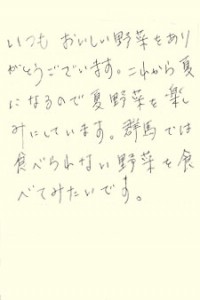 いつも おいしい野菜をあり
がとうございます。これから夏
になるので夏野菜を楽し
みにしています。群馬では
食べられない野菜を食
べてみたいです。